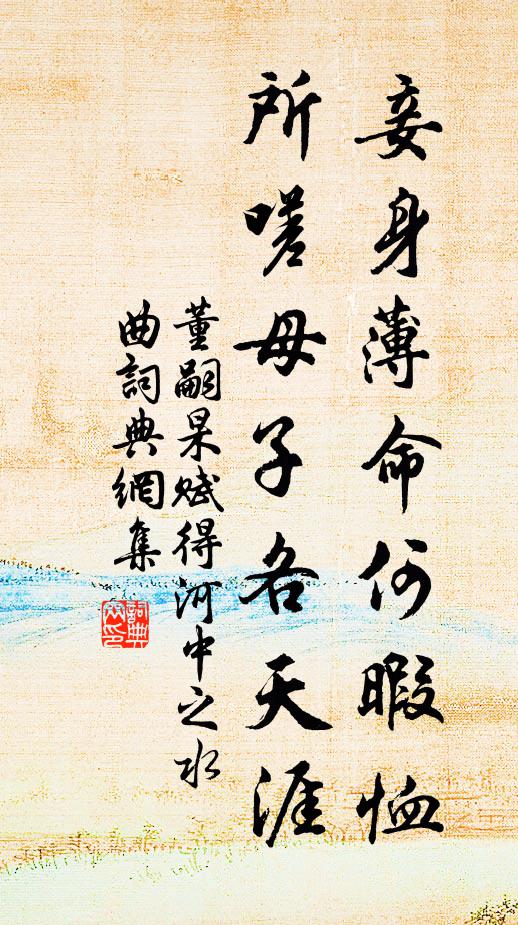 妾身薄命何暇恤
所嗟母子各天涯
董嗣杲賦得河中之水
曲詞典網集
詞典
網印